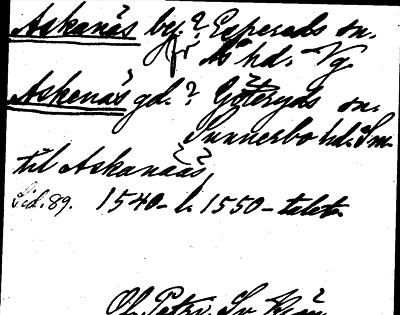 Askanäs by? Espereds sn.
Ås hd. Vg
Askenäs gd.? Göteryds sn.
Sunnerbo hd. Sm.
til Askanääs
Sid. 89. 1540- l. 1550-talet.
Ol. Petri, Sv. Krön